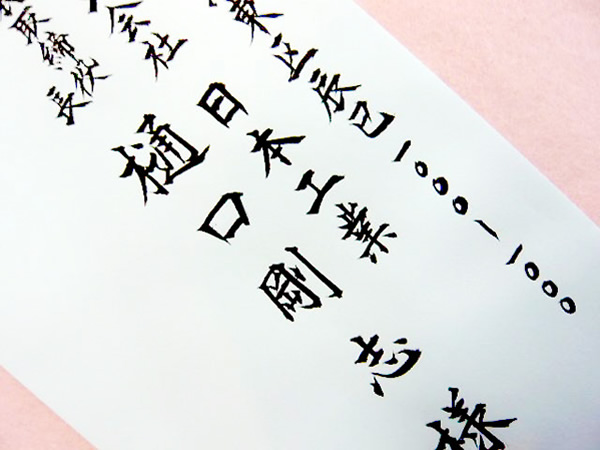 東区辰巳一〇〇〇ー一〇〇〇
会社 日本工業
取締役
長
樋口剛志様